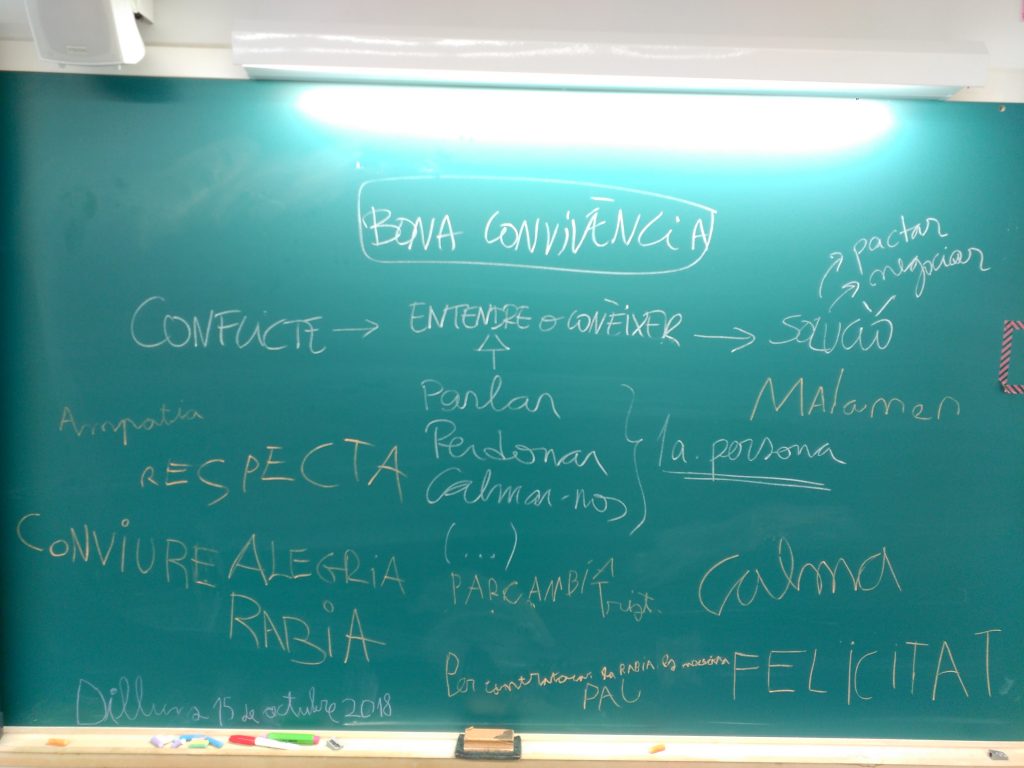 BONA CONVIVÈNCIA
pactar
negociar
CONFLICTE → ENTENDRE o CONÈIXER → SOLUCIÓ
Parlar
Perdonar
Calmar-nos
(...)
1a. persona
MAlamen
Ampatia
RESPECTA
CONVIURE ALEGRIA
RABIA
Trist.
Calma
Per la RABIA és
PAU
FELICITAT
Dilluns 15 de octubre 2018